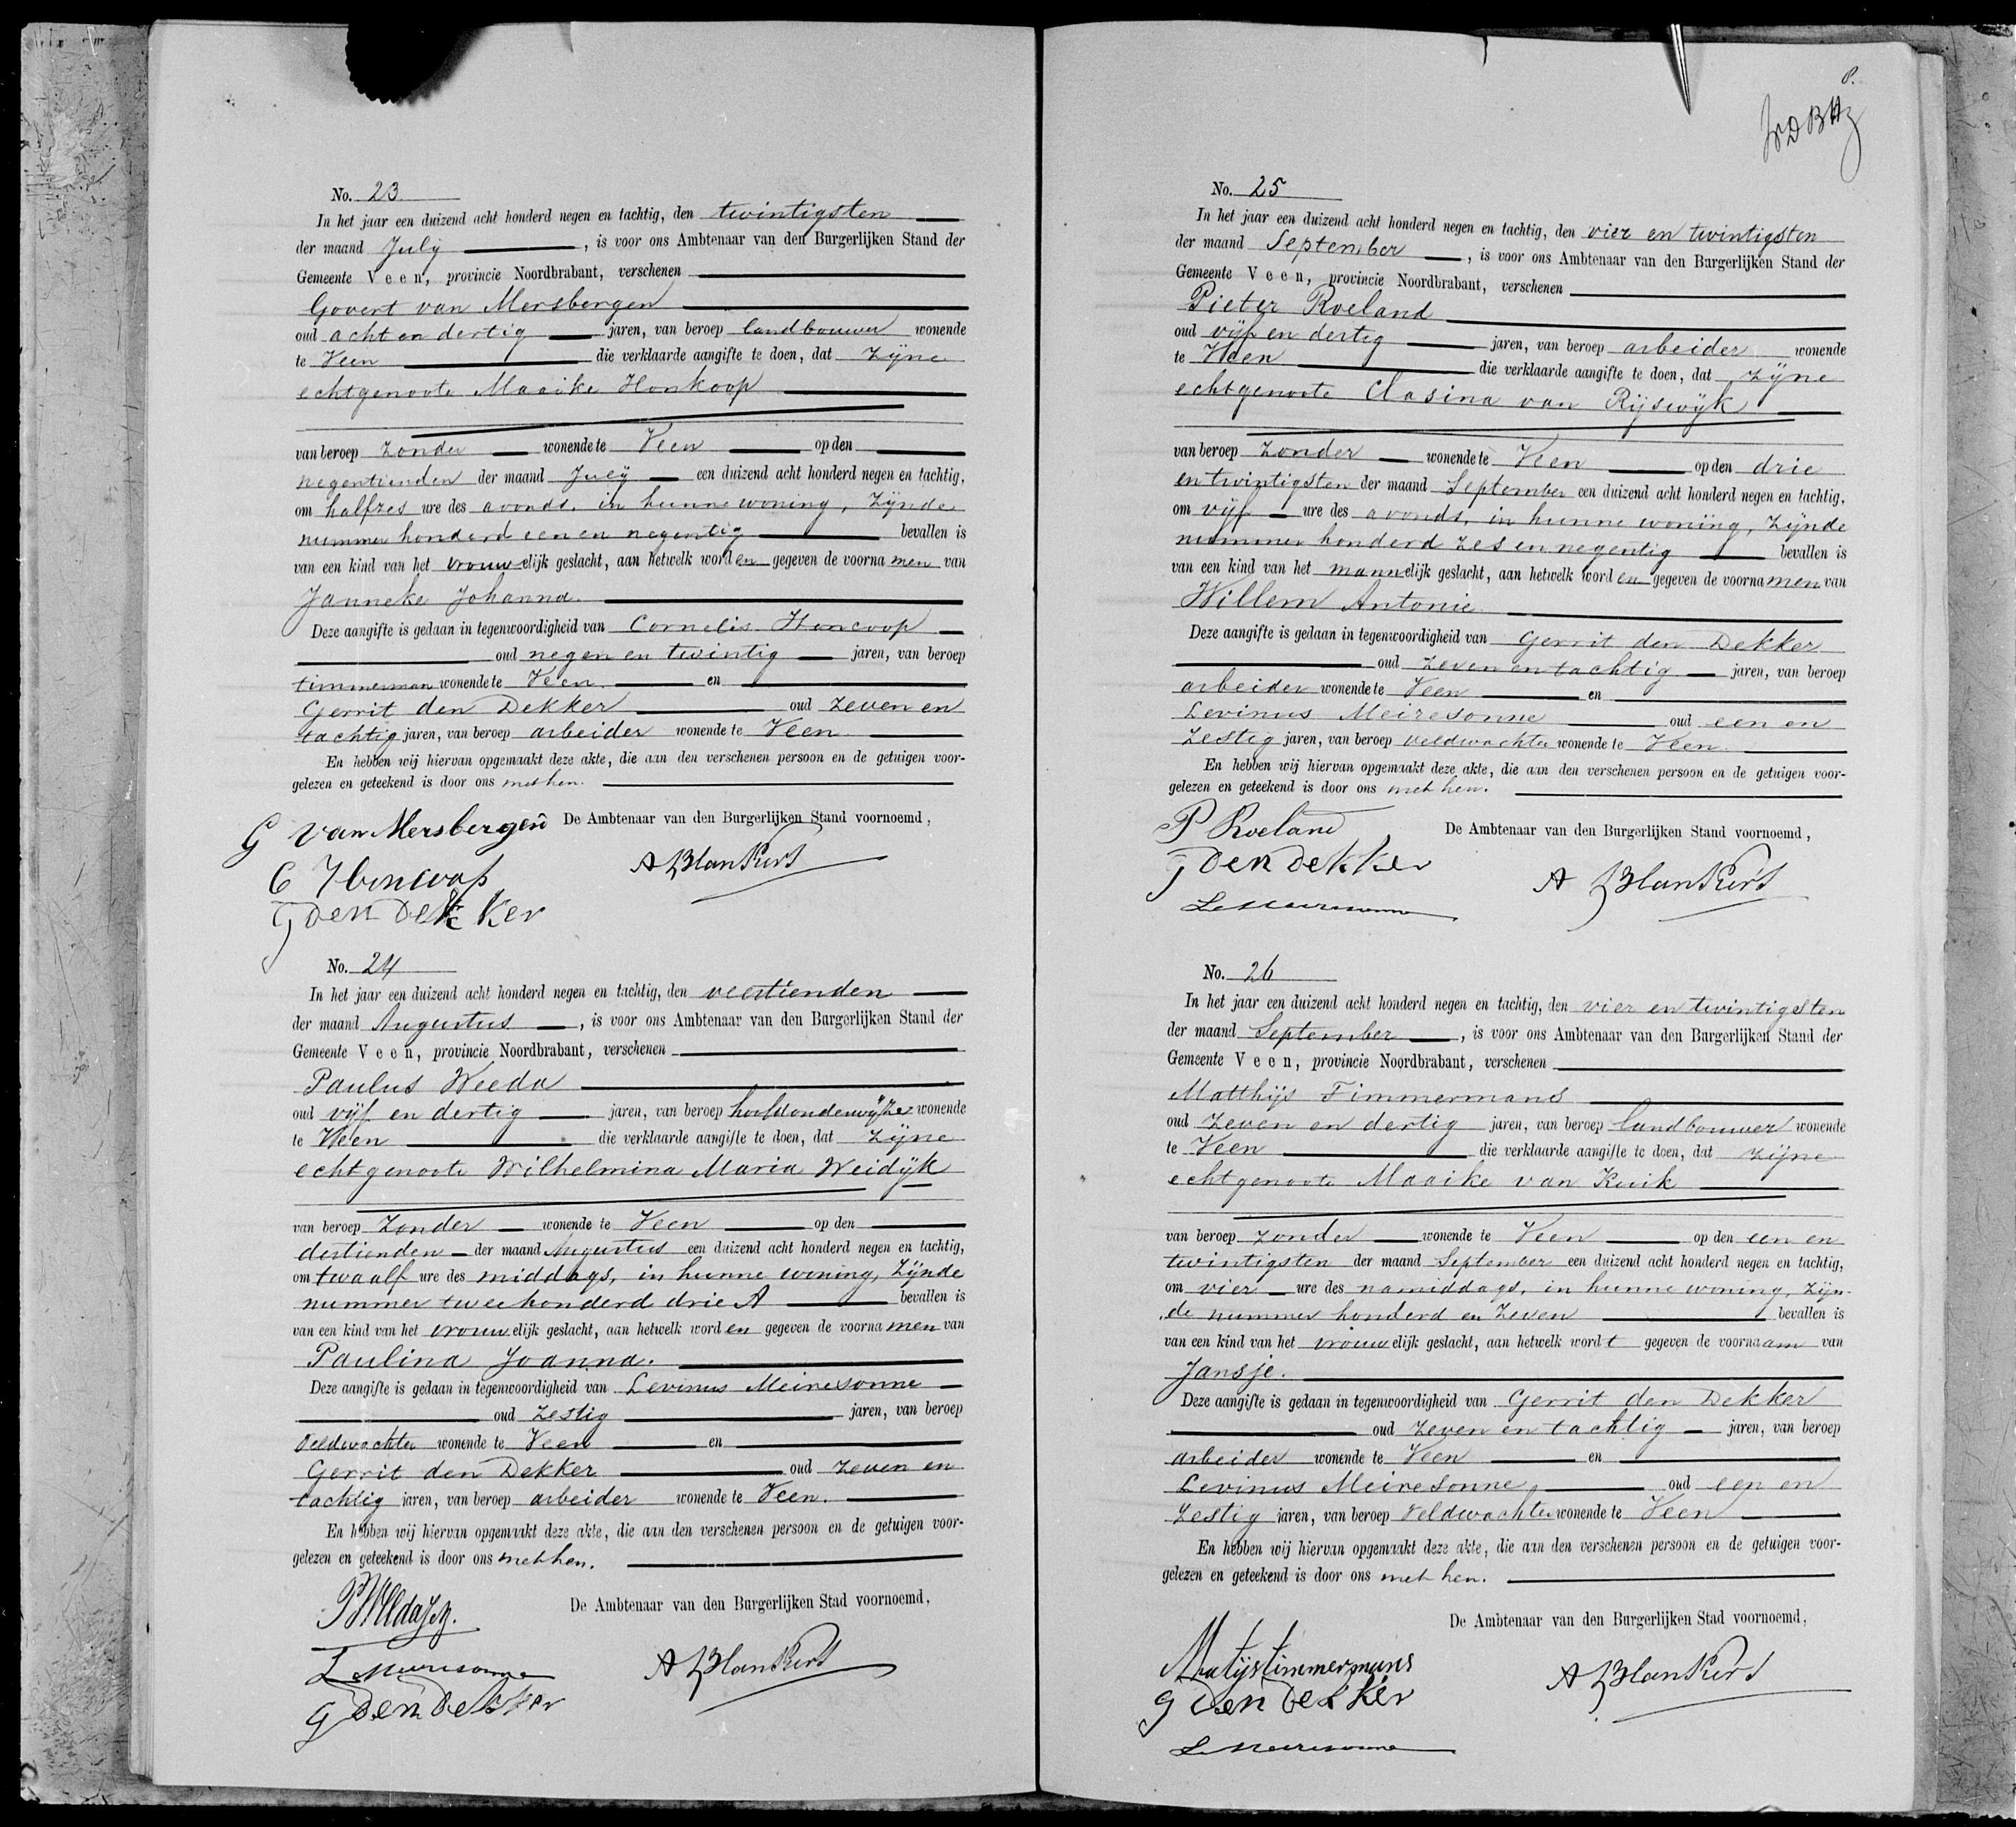 No. 23
In het jaar een duizend acht honderd negen en tachtig, den twintigsten
der maand July, is voor ons Ambtenaar van den Burgerlijken Stand der
Gemeente Veen, provincie Noordbrabant, verschenen
Govert van Mersbergen
oud acht en dertig jaren, van beroep landbouwer wonende
te Veen die verklaarde aangifte te doen, dat zijne
echtgenoote Maaike Honkoop
van beroep zonder wonende te Veen op den
negentienden der maand July een duizend acht honderd negen en tachtig,
om halfzes ure des avonds, in hunne woning, zijnde
nummer honderd een en negentig bevallen is
van een kind van het vrouwelijk geslacht, aan hetwelk worden gegeven de voornamen van
Janneke Johanna.
Deze aangifte is gedaan in tegenwoordigheid van Cornelis Honcoop
oud negen en twintig jaren, van beroep
timmerman wonende te Veen en
Gerrit den Dekker oud zeven en
tachtig jaren, van beroep arbeider wonende te Veen
En hebben wij hiervan opgemaakt deze akte, die aan den verschenen persoon en de getuigen voor-
gelezen en geteekend is door ons met hen.
G van Mersbergen De Ambtenaar van den Burgerlijken Stand voornoemd,
C Honcoop A Blankers
G den Dekker
No. 24
In het jaar een duizend acht honderd negen en tachtig, den veertienden
der maand Augustus, is voor ons Ambtenaar van den Burgerlijken Stand der
Gemeente Veen, provincie Noordbrabant, verschenen
Paulus Weeda
oud vijf en dertig jaren, van beroep hoofdonderwijzer wonende
te Veen die verklaarde aangifte te doen, dat zijne
echtgenoote Wilhelmina Maria Weidijk
van beroep zonder wonende te Veen op den
dertienden der maand Augustus een duizend acht honderd negen en tachtig,
om twaalf ure des middags, in hunne woning, zijnde
nummer twee honderd drie A bevallen is
van een kind van het vrouwelijk geslacht, aan hetwelk worden gegeven de voornamen van
Paulina Joanna.
Deze aangifte is gedaan in tegenwoordigheid van Levinus Meiresonne
oud zestig jaren, van beroep
veldwachter wonende te Veen en
Gerrit den Dekker oud zeven en
tachtig jaren, van beroep arbeider wonende te Veen.
En hebben wij hiervan opgemaakt deze akte, die aan den verschenen persoon en de getuigen voor-
gelezen en geteekend is door ons met hen.
De Ambtenaar van den Burgerlijken Stad voornoemd,
L Meiresonne A Blankers
G den Dekker
No. 25
In het jaar een duizend acht honderd negen en tachtig, den vier en twintigsten
der maand September, is voor ons Ambtenaar van den Burgerlijken Stand der
Gemeente Veen, provincie Noordbrabant, verschenen
Pieter Roeland
oud vijf en dertig jaren, van beroep arbeider wonende
te Veen die verklaarde aangifte te doen, dat zijne
echtgenoote Clasina van Rijswijk
van beroep zonder wonende te Veen op den drie
en twintigsten der maand September een duizend acht honderd negen en tachtig,
om vijf ure des avonds, in hunne woning, zijnde
nummer honderd zes en negentig bevallen is
van een kind van het mannelijk geslacht, aan hetwelk worden gegeven de voornamen van
Willem Antonie
Deze aangifte is gedaan in tegenwoordigheid van Gerrit den Dekker
oud zeven en tachtig jaren, van beroep
arbeider wonende te Veen en
Levinus Meiresonne oud een en
zestig jaren, van beroep veldwachter wonende te Veen.
En hebben wij hiervan opgemaakt deze akte, die aan den verschenen persoon en de getuigen voor-
gelezen en geteekend is door ons met hen.
P Roeland De Ambtenaar van den Burgerlijken Stand voornoemd,
G den Dekker A Blankers
L Meiresonne
No. 26
In het jaar een duizend acht honderd negen en tachtig, den vier en twintigsten
der maand September, is voor ons Ambtenaar van den Burgerlijken Stand der
Gemeente Veen, provincie Noordbrabant, verschenen
Matthijs Timmermans
oud zeven en dertig jaren, van beroep landbouwer wonende
te Veen die verklaarde aangifte te doen, dat zijne
echtgenoote Maaike van Kuik
van beroep zonder wonende te Veen op den een en
twintigsten der maand September een duizend acht honderd negen en tachtig,
om vier ure des namiddags, in hunne woning, zijn-
de nummer honderd en zeven bevallen is
van een kind van het vrouwelijk geslacht, aan hetwelk wordt gegeven de voornaam van
Jansje.
Deze aangifte is gedaan in tegenwoordigheid van Gerrit den Dekker
oud zeven en tachtig jaren, van beroep
arbeider wonende te Veen en
Levinus Meiresonne oud een en
zestig jaren, van beroep veldwachter wonende te Veen
En hebben wij hiervan opgemaakt deze akte, die aan den verschenen persoon en de getuigen voor-
gelezen en geteekend is door ons met hen.
De Ambtenaar van den Burgerlijken Stad voornoemd,
Matijs timmermans A Blankers
G den Dekker
L Meiresonne